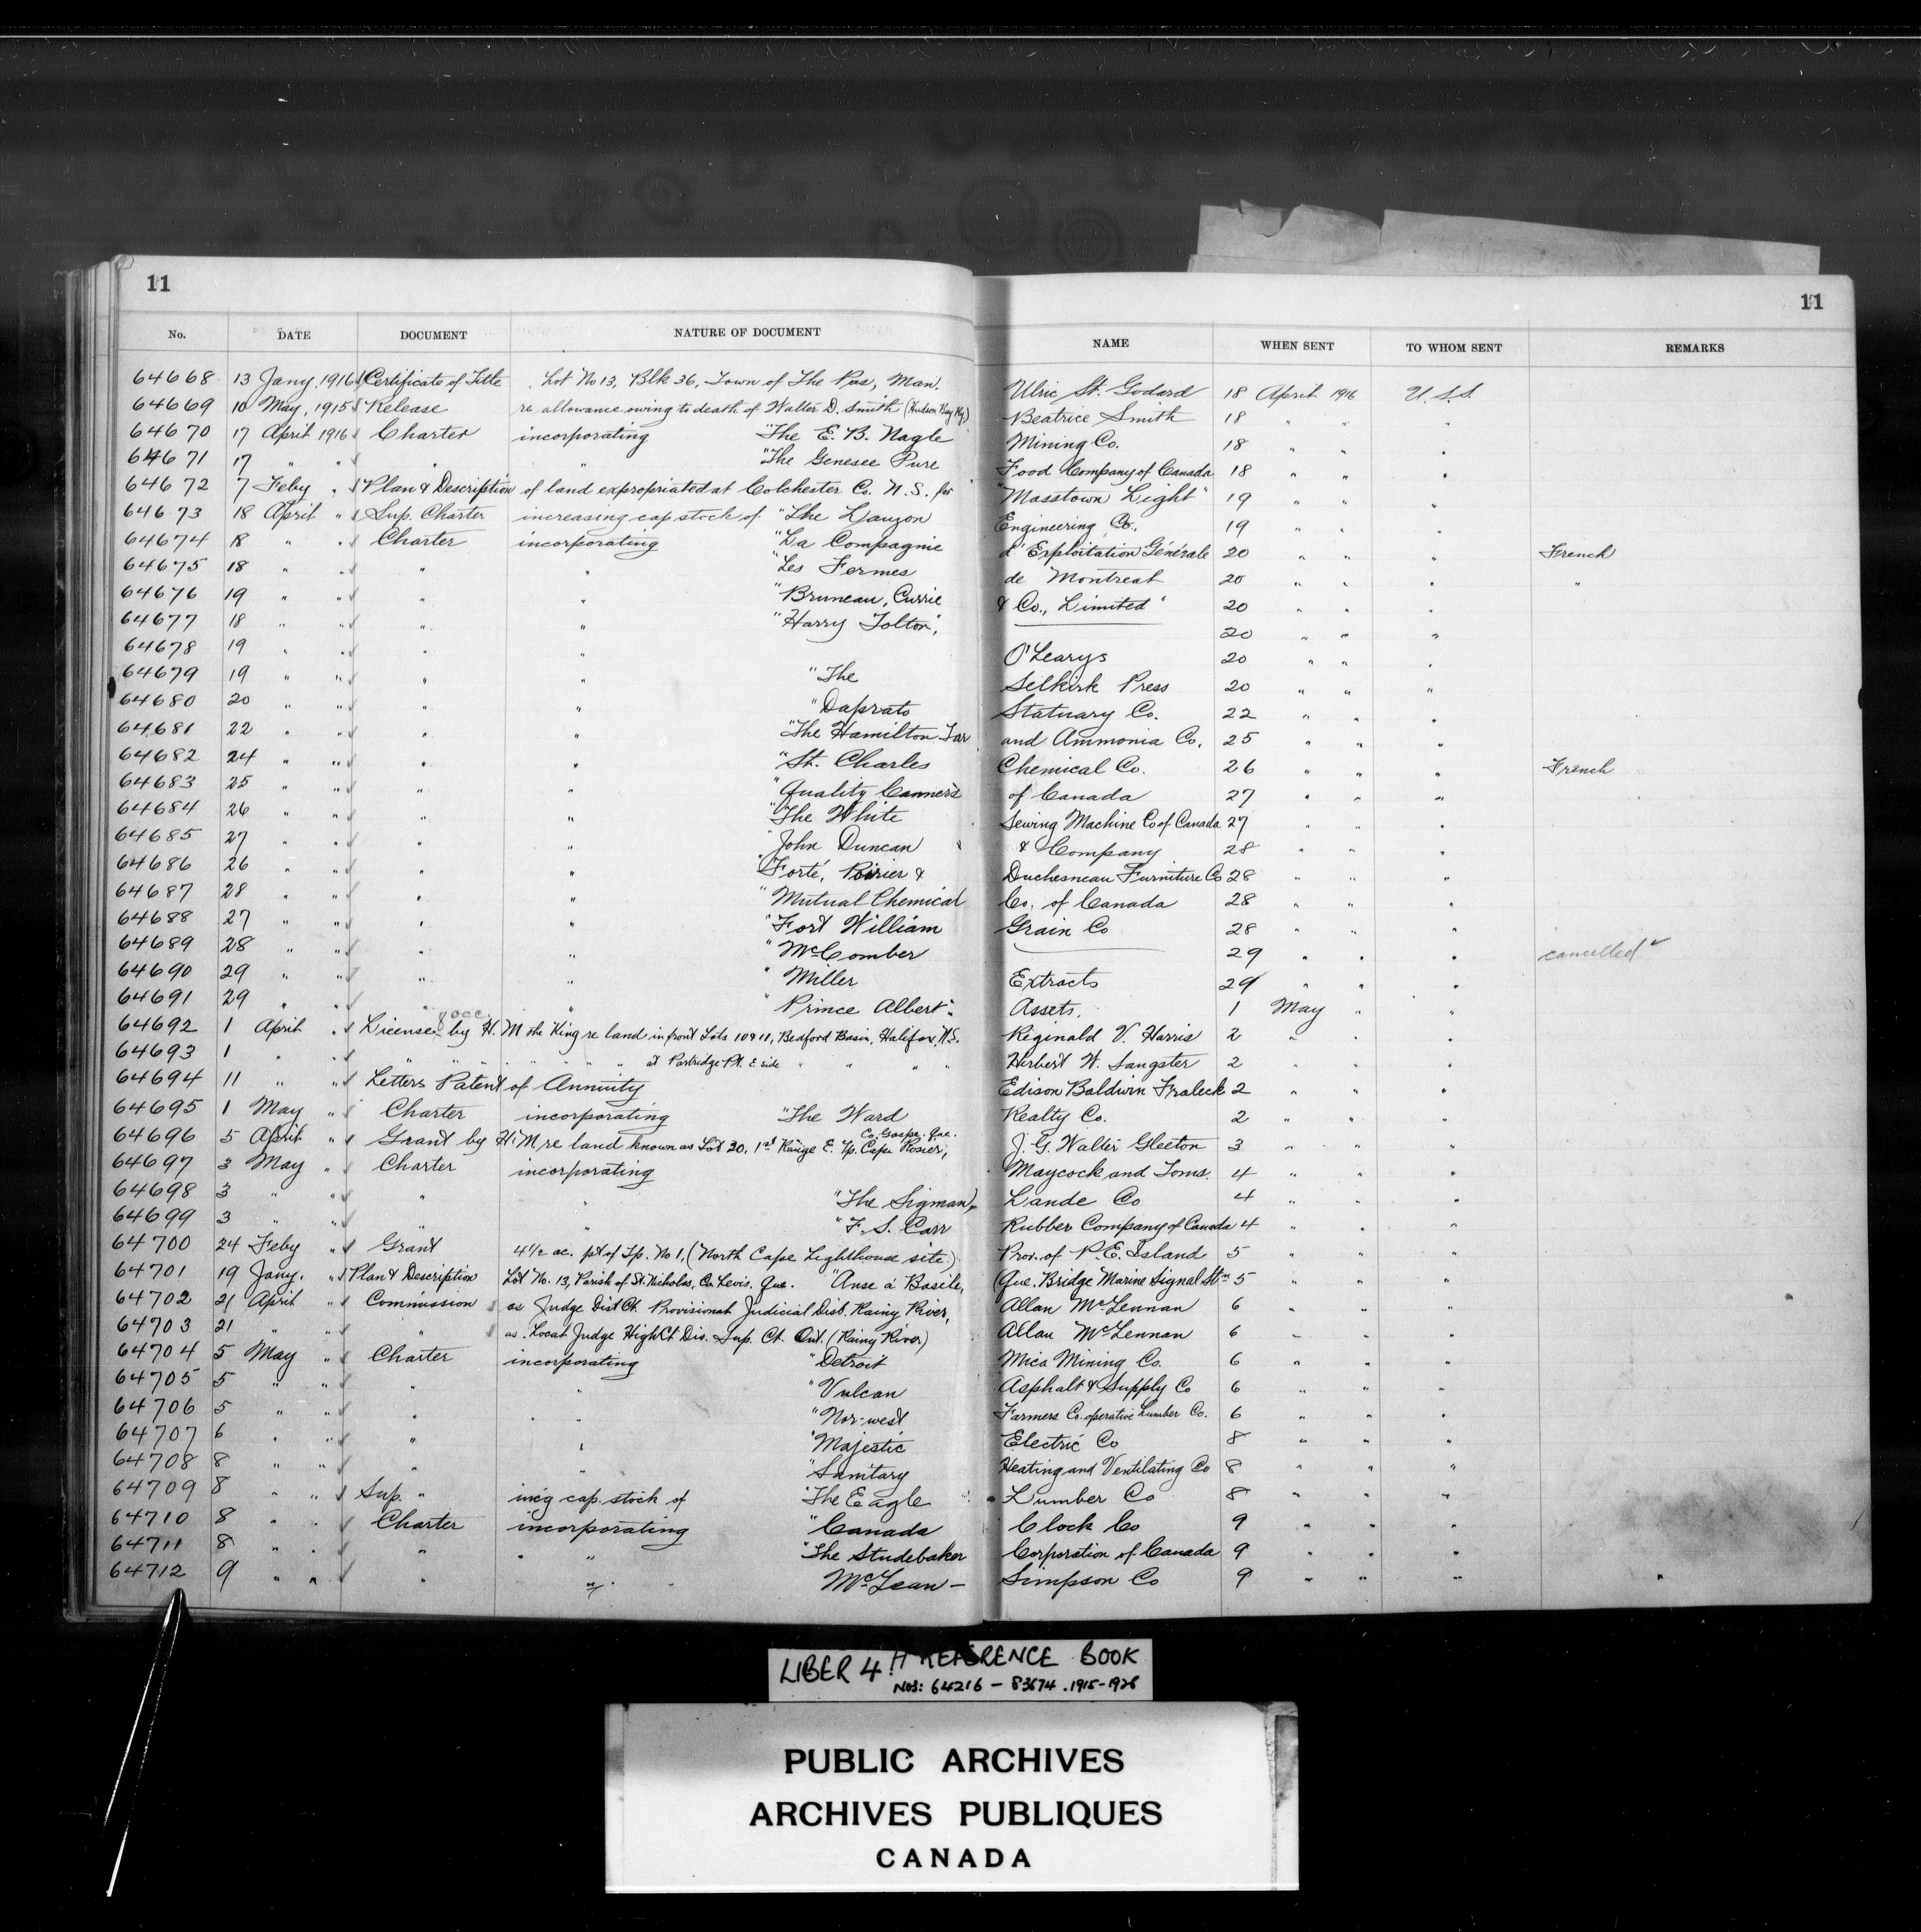 11
11
No. DATE DOCUMENT NATURE OF DOCUMENT NAME WHEN SENT TO WHOM SENT REMARKS
64668 13 Jany. 1916 Certificate of Title Lot No 13, Blk 36, Town of The Pas, Man. Ulric St. Godard 18 April 1916 U.S.S.
64669 10 May, 1915 Release re allowance owing to death of Walter D. Smith (Hudson Bay Ry.) Beatrice Smith 18 " " "
64670 17 April 1916 Charter incorporating "The E. B. Nagle Mining Co. 18 " " "
64671 17 " " " " "The Genesee Pure Food Company of Canada 18 " " "
64672 7 Feby " Plan & Description of land expropriated at Colchester Co. N.S. for "Masstown Light" 19 " " "
64673 18 April " Sup. Charter increasing cap stock of "The Lauzon Engineering Co. 19 " " "
64674 18 " " Charter incorporating "La Compagnie d'Exploitation Générale 20 " " " French
64675 18 " " " " "Les Fermes de Montreal 20 " " " "
64676 19 " " " " "Bruneau, Currie & Co., Limited" 20 " " "
64677 18 " " " " "Harry Tolton", 20 " " "
64678 19 " " " " O'Learys 20 " " "
64679 19 " " " " "The Selkirk Press 20 " " "
64680 20 " " " " "Daprato Statuary Co. 22 " " "
64681 22 " " " " "The Hamilton Tar and Ammonia Co. 25 " " "
64682 24 " " " " "St. Charles Chemical Co. 26 " " " French
64683 25 " " " " "Quality Canners of Canada 27 " " "
64684 26 " " " " "The White Sewing Machine Co of Canada 27 " " "
64685 27 " " " " "John Duncan & Company 28 " " "
64686 26 " " " " "Forté, Poirier & Duchesneau Furniture Co 28 " " "
64687 28 " " " " "Mutual Chemical Co. of Canada 28 " " "
64688 27 " " " " "Fort William Grain Co 28 " " "
64689 28 " " " " "McComber 29 " " " cancelled
64690 29 " " " " "Miller Extracts 29 " " "
64691 29 " " " " "Prince Albert" Assets. 1 May " "
64692 1 April " License occ. by H.M the King re land in front Lots 10 & 11, Bedford Basin, Halifax, N.S. Reginald V. Harris 2 " " "
64693 1 " " " " " " " " at Partridge Pt. E. side " " " " Herbert W. Sangster 2 " " "
64694 11 " " Letters Patent of Annuity Edison Baldwin Fraleck 2 " " "
64695 1 May " Charter incorporating "The Ward Realty Co. 2 " " "
64696 5 April " Grant by H.M re land known as Lot 30, 1st Range E. Tp. Cape Rosier, Co. Gaspe, Que. J. G. Walter Gleeton 3 " " "
64697 3 May " Charter incorporating Maycock and Toms. 4 " " "
64698 3 " " " " "The Sigman, Lande Co 4 " " "
64699 3 " " " " "F. S. Carr Rubber Company of Canada 4 " " "
64700 24 Feby " Grant 4½ ac. pt of Tp. No 1, (North Cape Lighthouse site) Prov. of P.E. Island 5 " " "
64701 19 Jany. " Plan & Description Lot No. 13, Parish of St. Nicholas, Co. Levis, Que. "Anse à Basile, (Que. Bridge Marine Signal Stn 5 " " "
64702 21 April " Commission as Judge Dist Ct. Provisional Judicial Dist. Rainy River, Allan McLennan 6 " " "
64703 21 " " " as Local Judge High Ct. Div. Sup. Ct. Ont. (Rainy River) Allan McLennan 6 " " "
64704 5 May " Charter incorporating "Detroit Mica Mining Co. 6 " " "
64705 5 " " " " "Vulcan Asphalt & Supply Co 6 " " "
64706 5 " " " " "Nor-west Farmers Co-operative Lumber Co. 6 " " "
64707 6 " " " " "Majestic Electric Co 8 " " "
64708 8 " " " " "Sanitary Heating and Ventilating Co 8 " " "
64709 8 " " Sup. " inc'g cap. stock of "The Eagle Lumber Co 8 " " "
64710 8 " " Charter incorporating "Canada Clock Co 9 " " "
64711 8 " " " " "The Studebaker Corporation of Canada 9 " " "
64712 9 " " " " McLean - Simpson Co 9 " " "
LIBER 4 H REFERENCE BOOK
NOS: 64216 - 83674. 1915-1926
PUBLIC ARCHIVES
ARCHIVES PUBLIQUES
CANADA